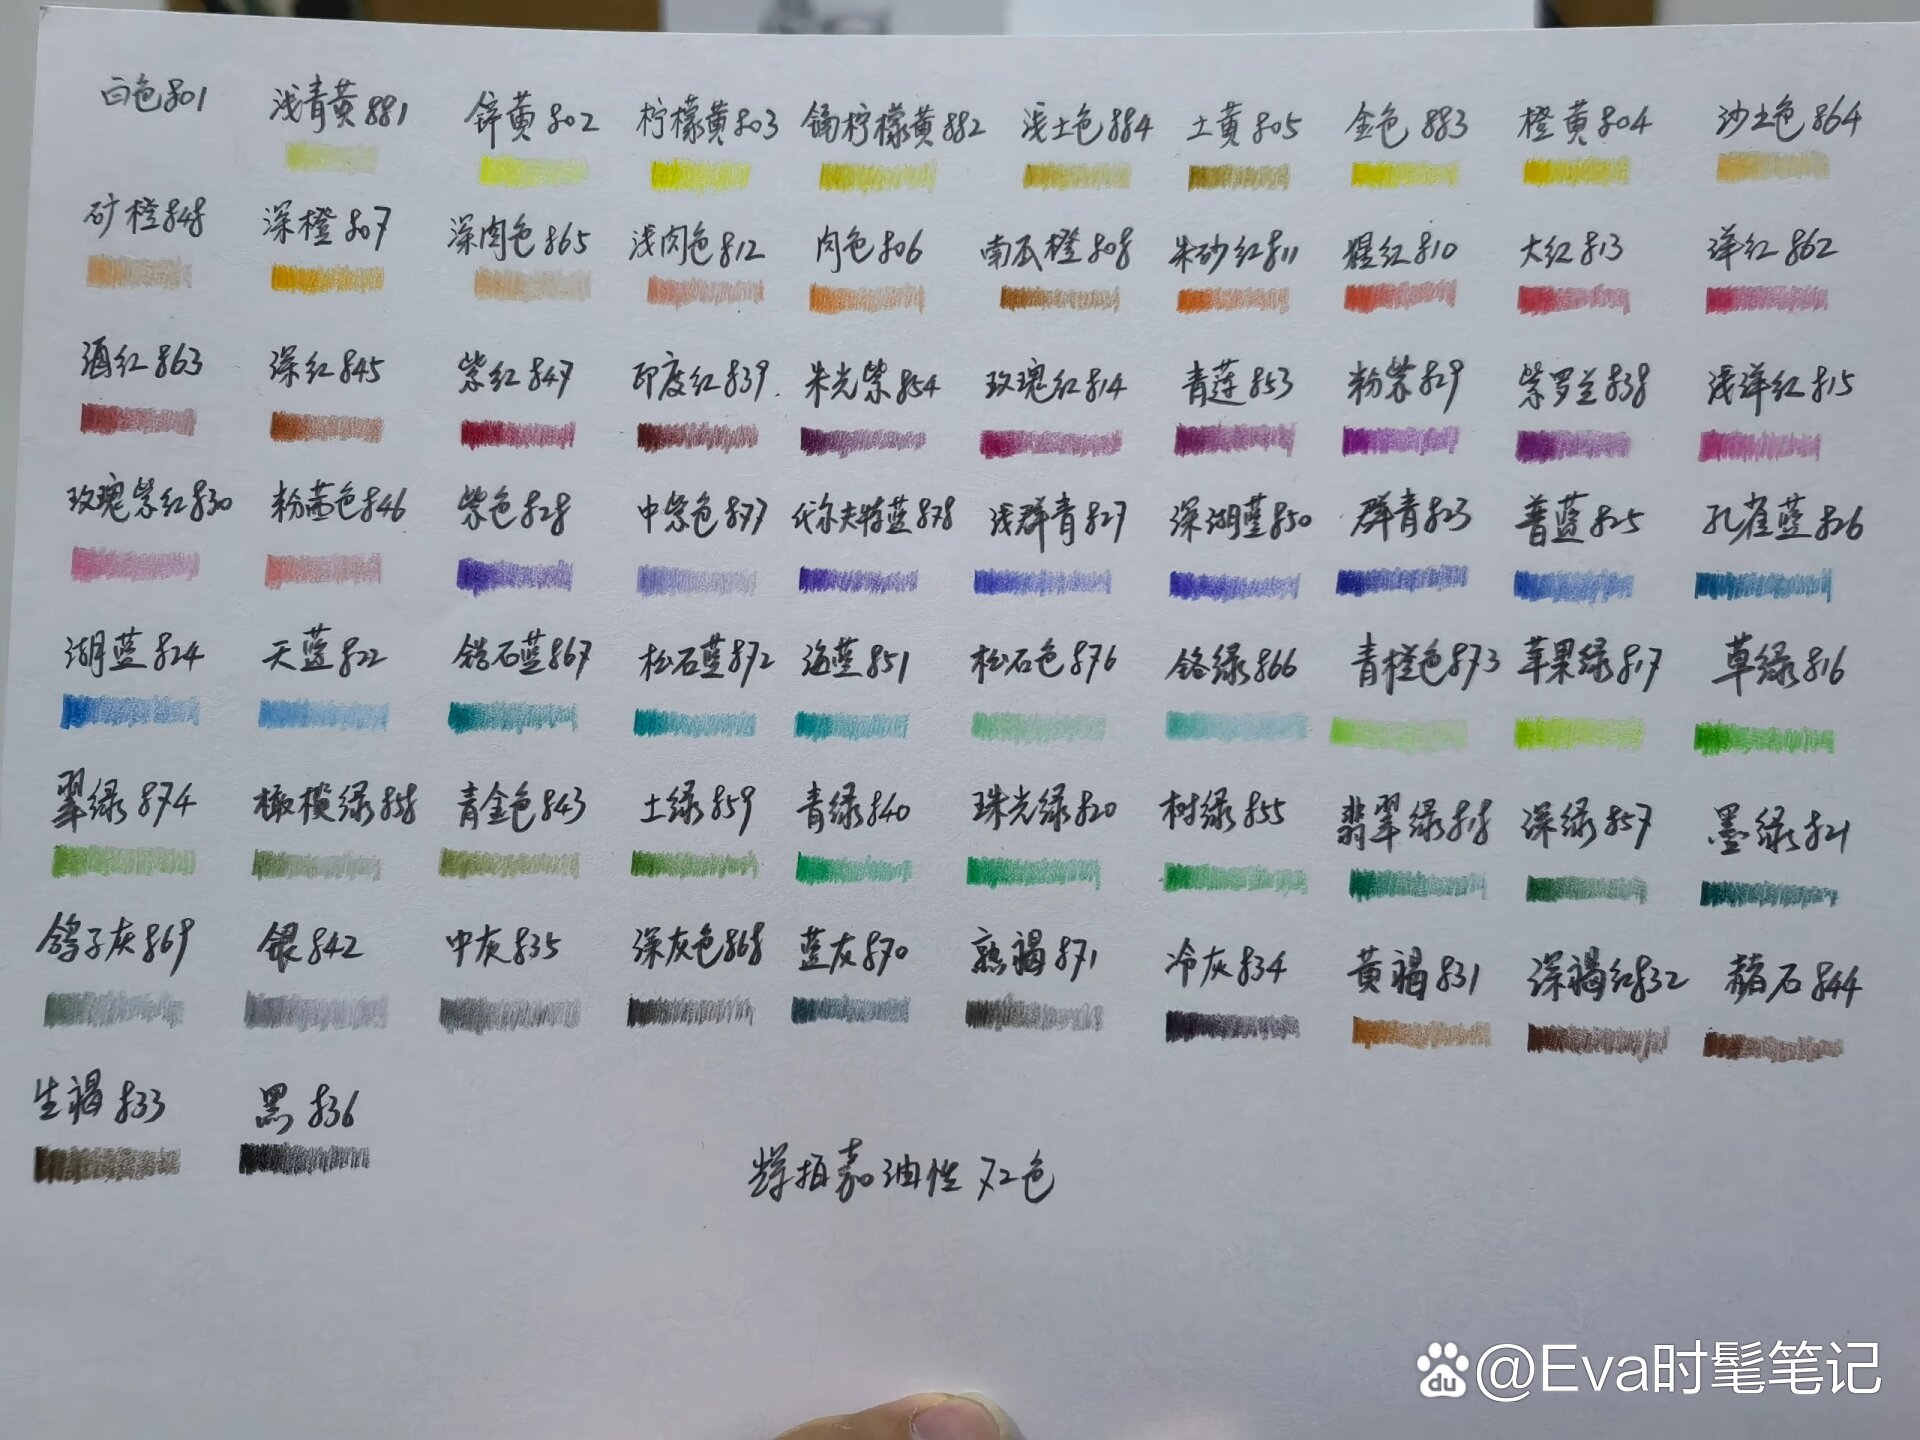 白色801 浅青黄881 锌黄802 柠檬黄803 镉柠檬黄882 浅土色884 土黄805 金色883 橙黄804 沙土色864
矿橙848 深橙807 深肉色865 浅肉色812 肉色806 南瓜橙808 朱砂红811 猩红810 大红813 洋红862
酒红863 深红845 紫红847 印度红839 朱光紫854 玫瑰红814 青莲853 粉紫829 紫罗兰838 浅洋红815
玫瑰紫红830 粉茜色846 紫色828 中紫色877 代尔夫特蓝878 浅群青827 深湖蓝850 群青823 普蓝825 孔雀蓝826
湖蓝824 天蓝822 锆石蓝867 松石蓝872 海蓝851 松石色876 铬绿866 青橙色873 苹果绿817 草绿816
翠绿874 橄榄绿858 青金色843 土绿859 青绿840 珠光绿820 树绿855 翡翠绿818 深绿857 墨绿821
鸽子灰869 银842 中灰835 深灰色868 蓝灰870 熟褐871 冷灰834 黄褐831 深褐红832 赭石844
生褐833 黑836
辉柏嘉油性72色
du @Eva时髦笔记